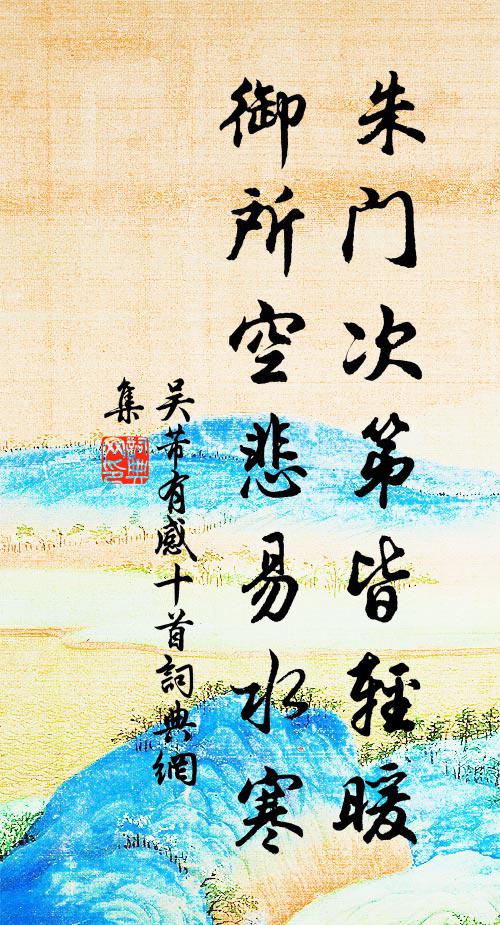 朱门次第皆輕暖
御所空悲易水寒
吴芾有感十首詞典網
集